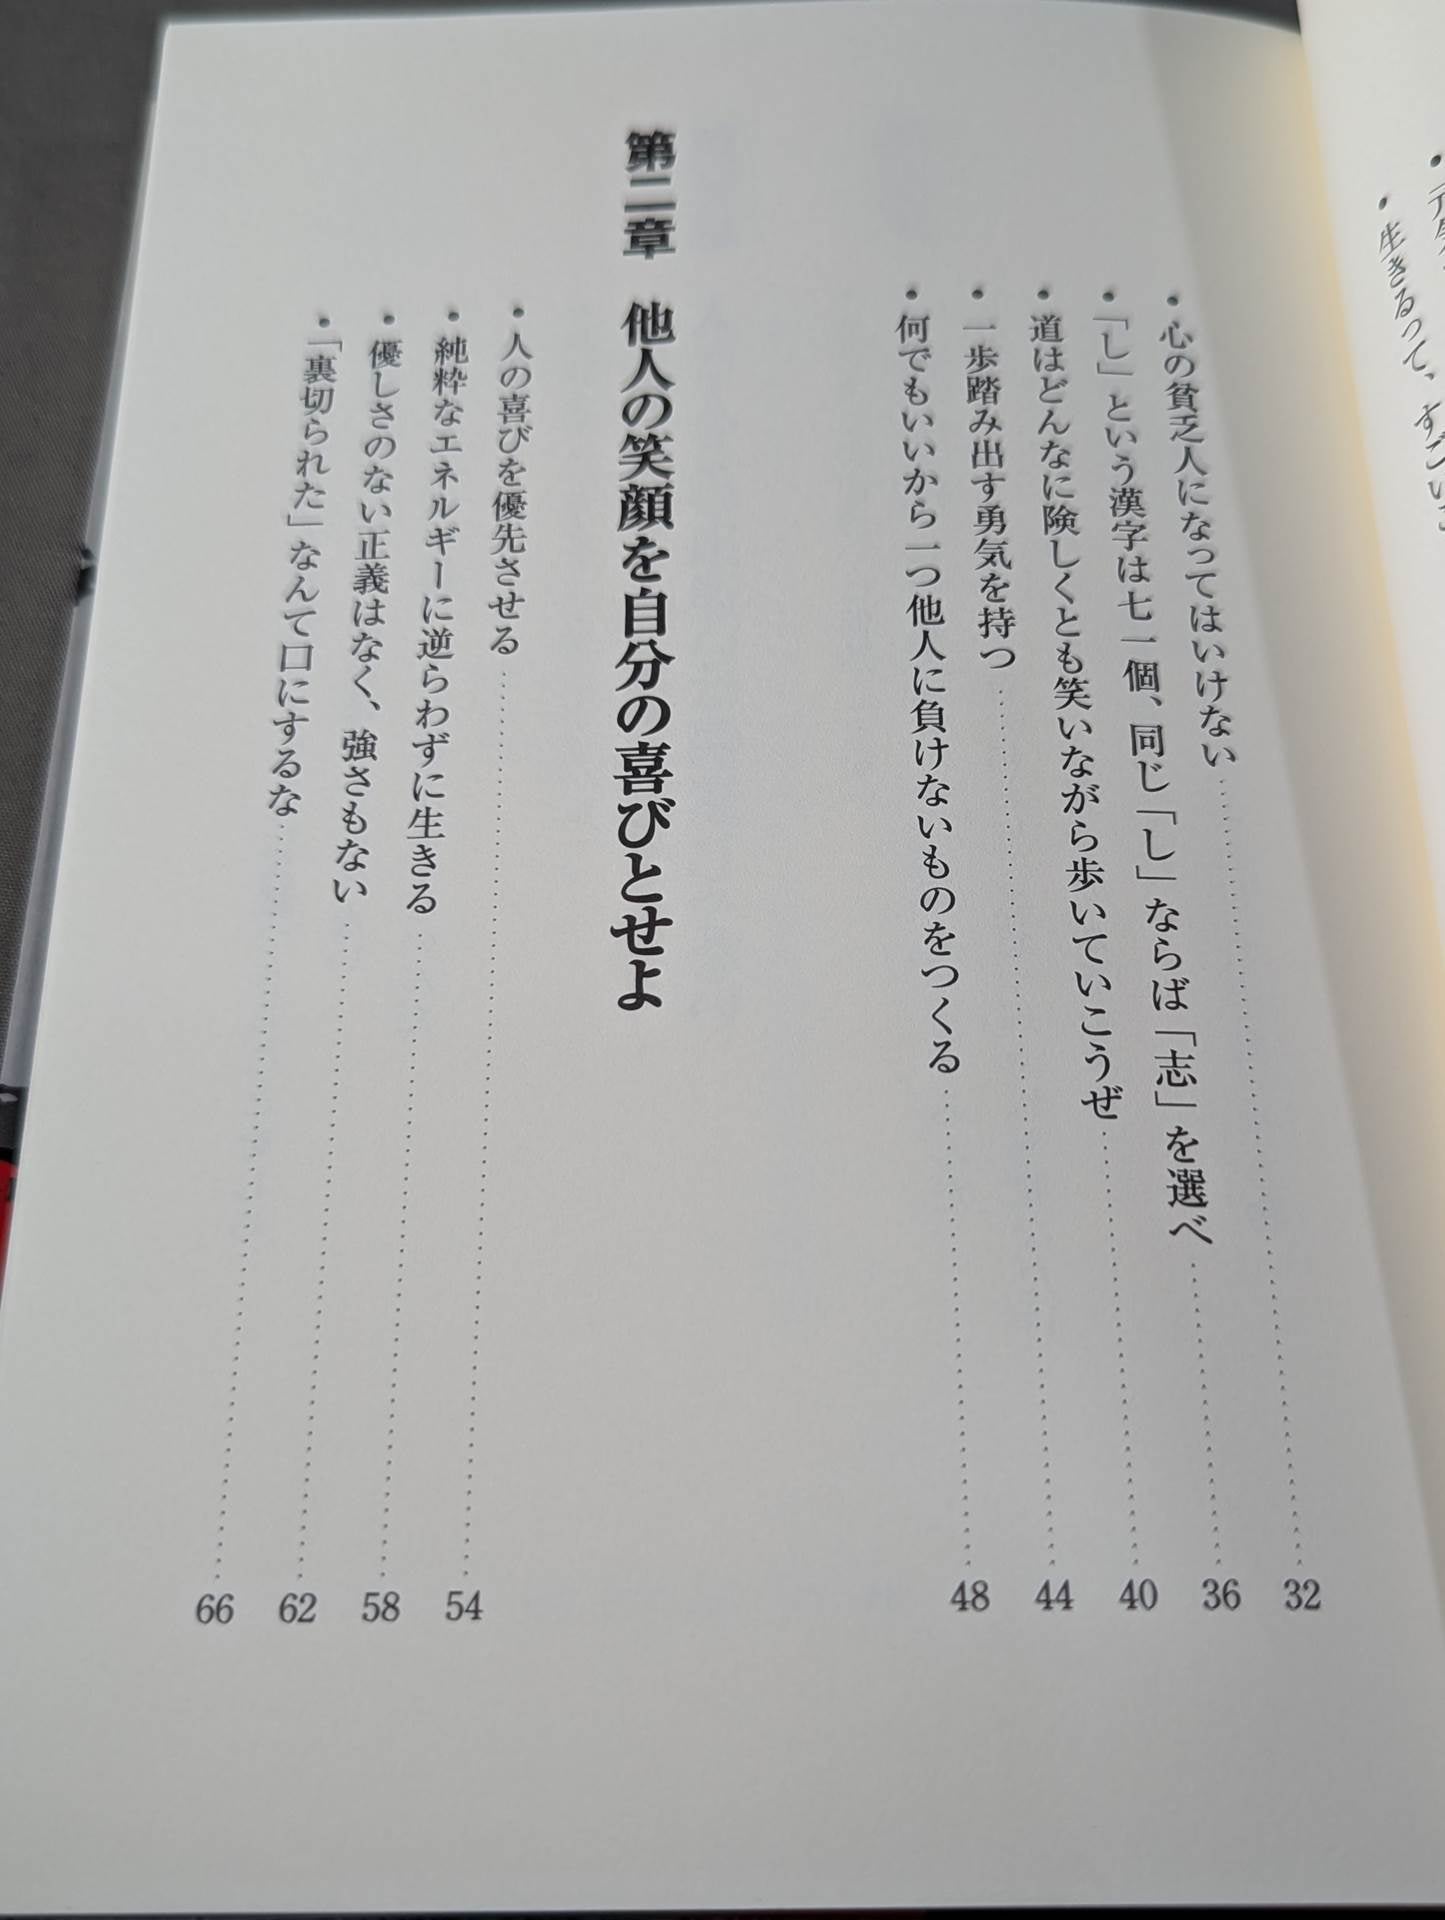 ・生きるって、すごいこ
・心の貧乏人になってはいけない……32
・「し」という漢字は七一個、同じ「し」ならば「志」を選べ……36
・道はどんなに険しくとも笑いながら歩いていこうぜ……40
・一歩踏み出す勇気を持つ……44
・何でもいいから一つ他人に負けないものをつくる……48
第二章 他人の笑顔を自分の喜びとせよ
・人の喜びを優先させる……54
・純粋なエネルギーに逆らわずに生きる……58
・優しさのない正義はなく、強さもない……62
・「裏切られた」なんて口にするな……66